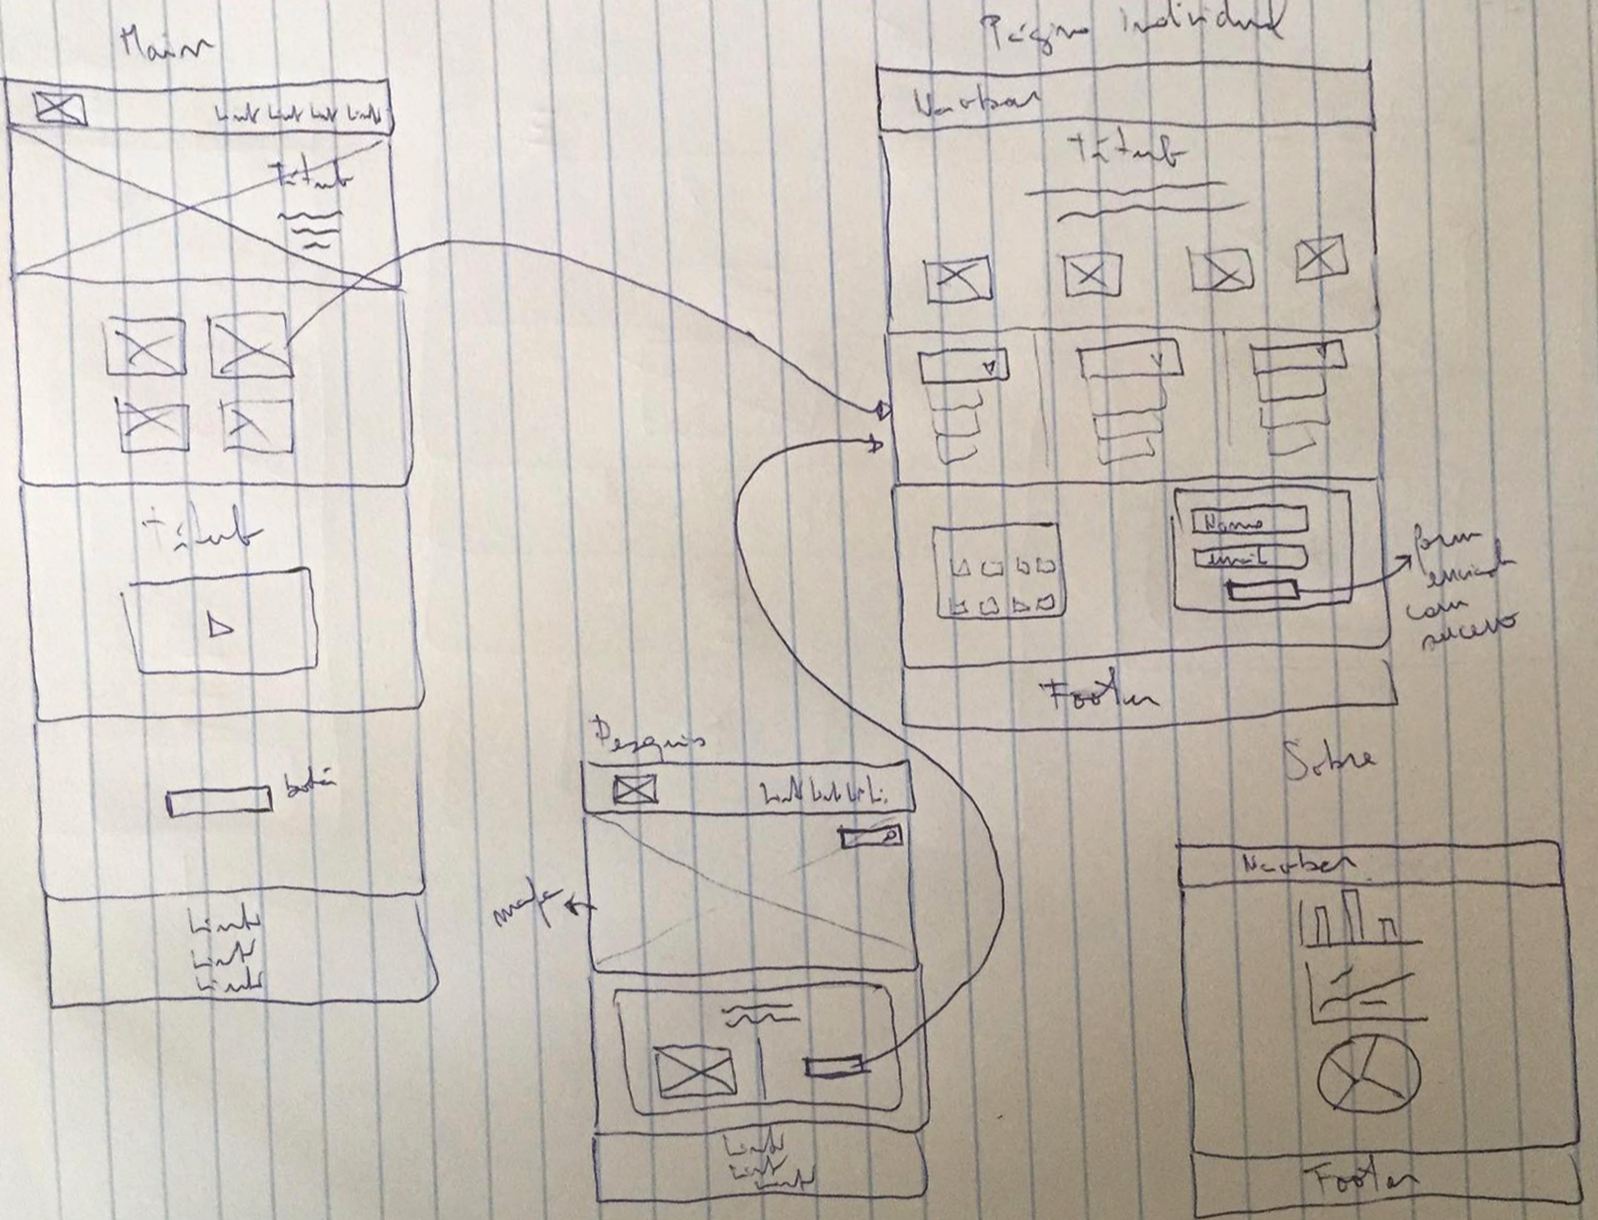 Main
Link Link Link Link
Título
Título
botão
Link
Link
Link
Página individual
Navbar
Título
Nome
email
form
enviado
com
sucesso
Footer
Pesquisa
Link Link Link Li.
mapa
Link
Link
Link
Sobre
Navbar
Footer